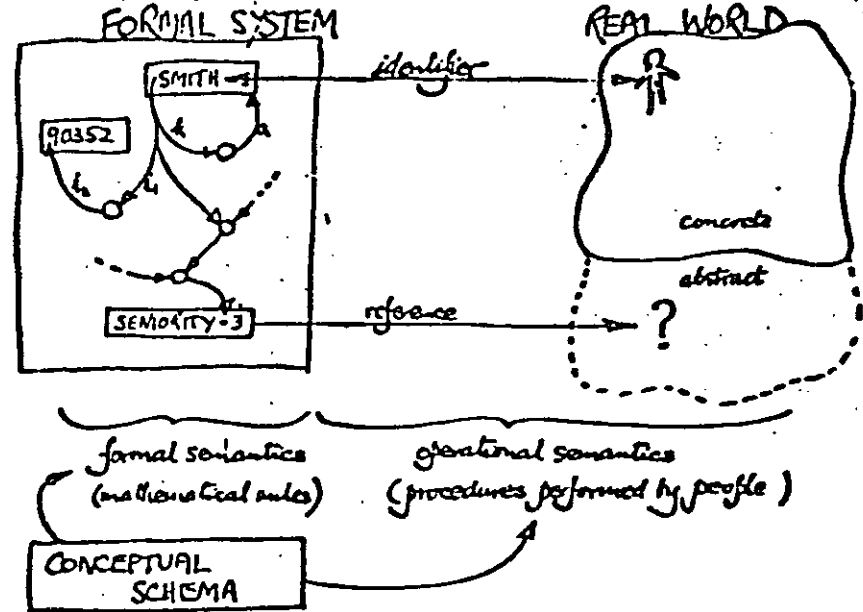 FORMAL SYSTEM
REAL WORLD
SMITH
identifier
90352
k
a
i₂
i₁
concrete
abstract
SENIORITY-3
reference
?
formal semantics
operational semantics
(mathematical rules)
(procedures performed by people)
CONCEPTUAL
SCHEMA